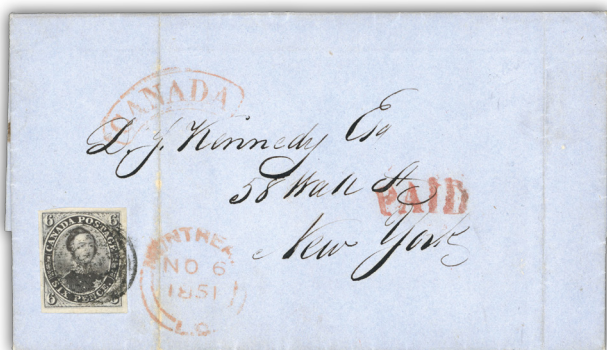 CANADA
D. J. Kennedy Esq
58 Wall St
PAID
New York
6 6
CANADA POSTAGE
SIX PENCE
6 6
MONTREAL
NO 6
1851
L.C.